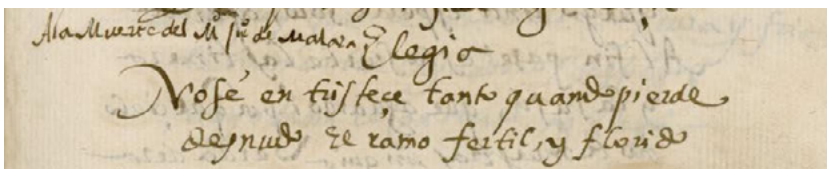 A la Muerte del M.º Ju.º de Malara Elegia
No se en tristece tanto quando pierde
desnudo el ramo fertil, y florido